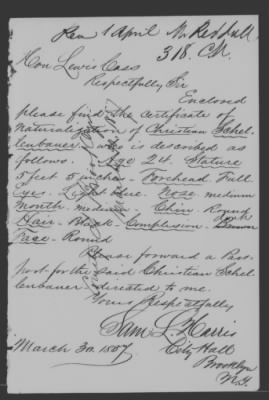 Rec 1 April Mr Redfall
318. CM.
Hon Lewis Cass
Respectfully Sir
Enclosed
please find the certificate of
Naturalization of Christian Schel-
lenbauer who is described as
follows. Age 24. Stature
5 feet 5 inches - Forehead Full
Eyes. Light Blue. Nose medium
Mouth. medium - Chin - Round
Hair - Black - Complexion - dark
Face - Round
Please forward a Pass
port for the said Christian Schel-
lenbauer directed to me.
Yours Respectfully
Saml L. Harris
City Hall
March 30. 1857 Brooklyn
N.Y.